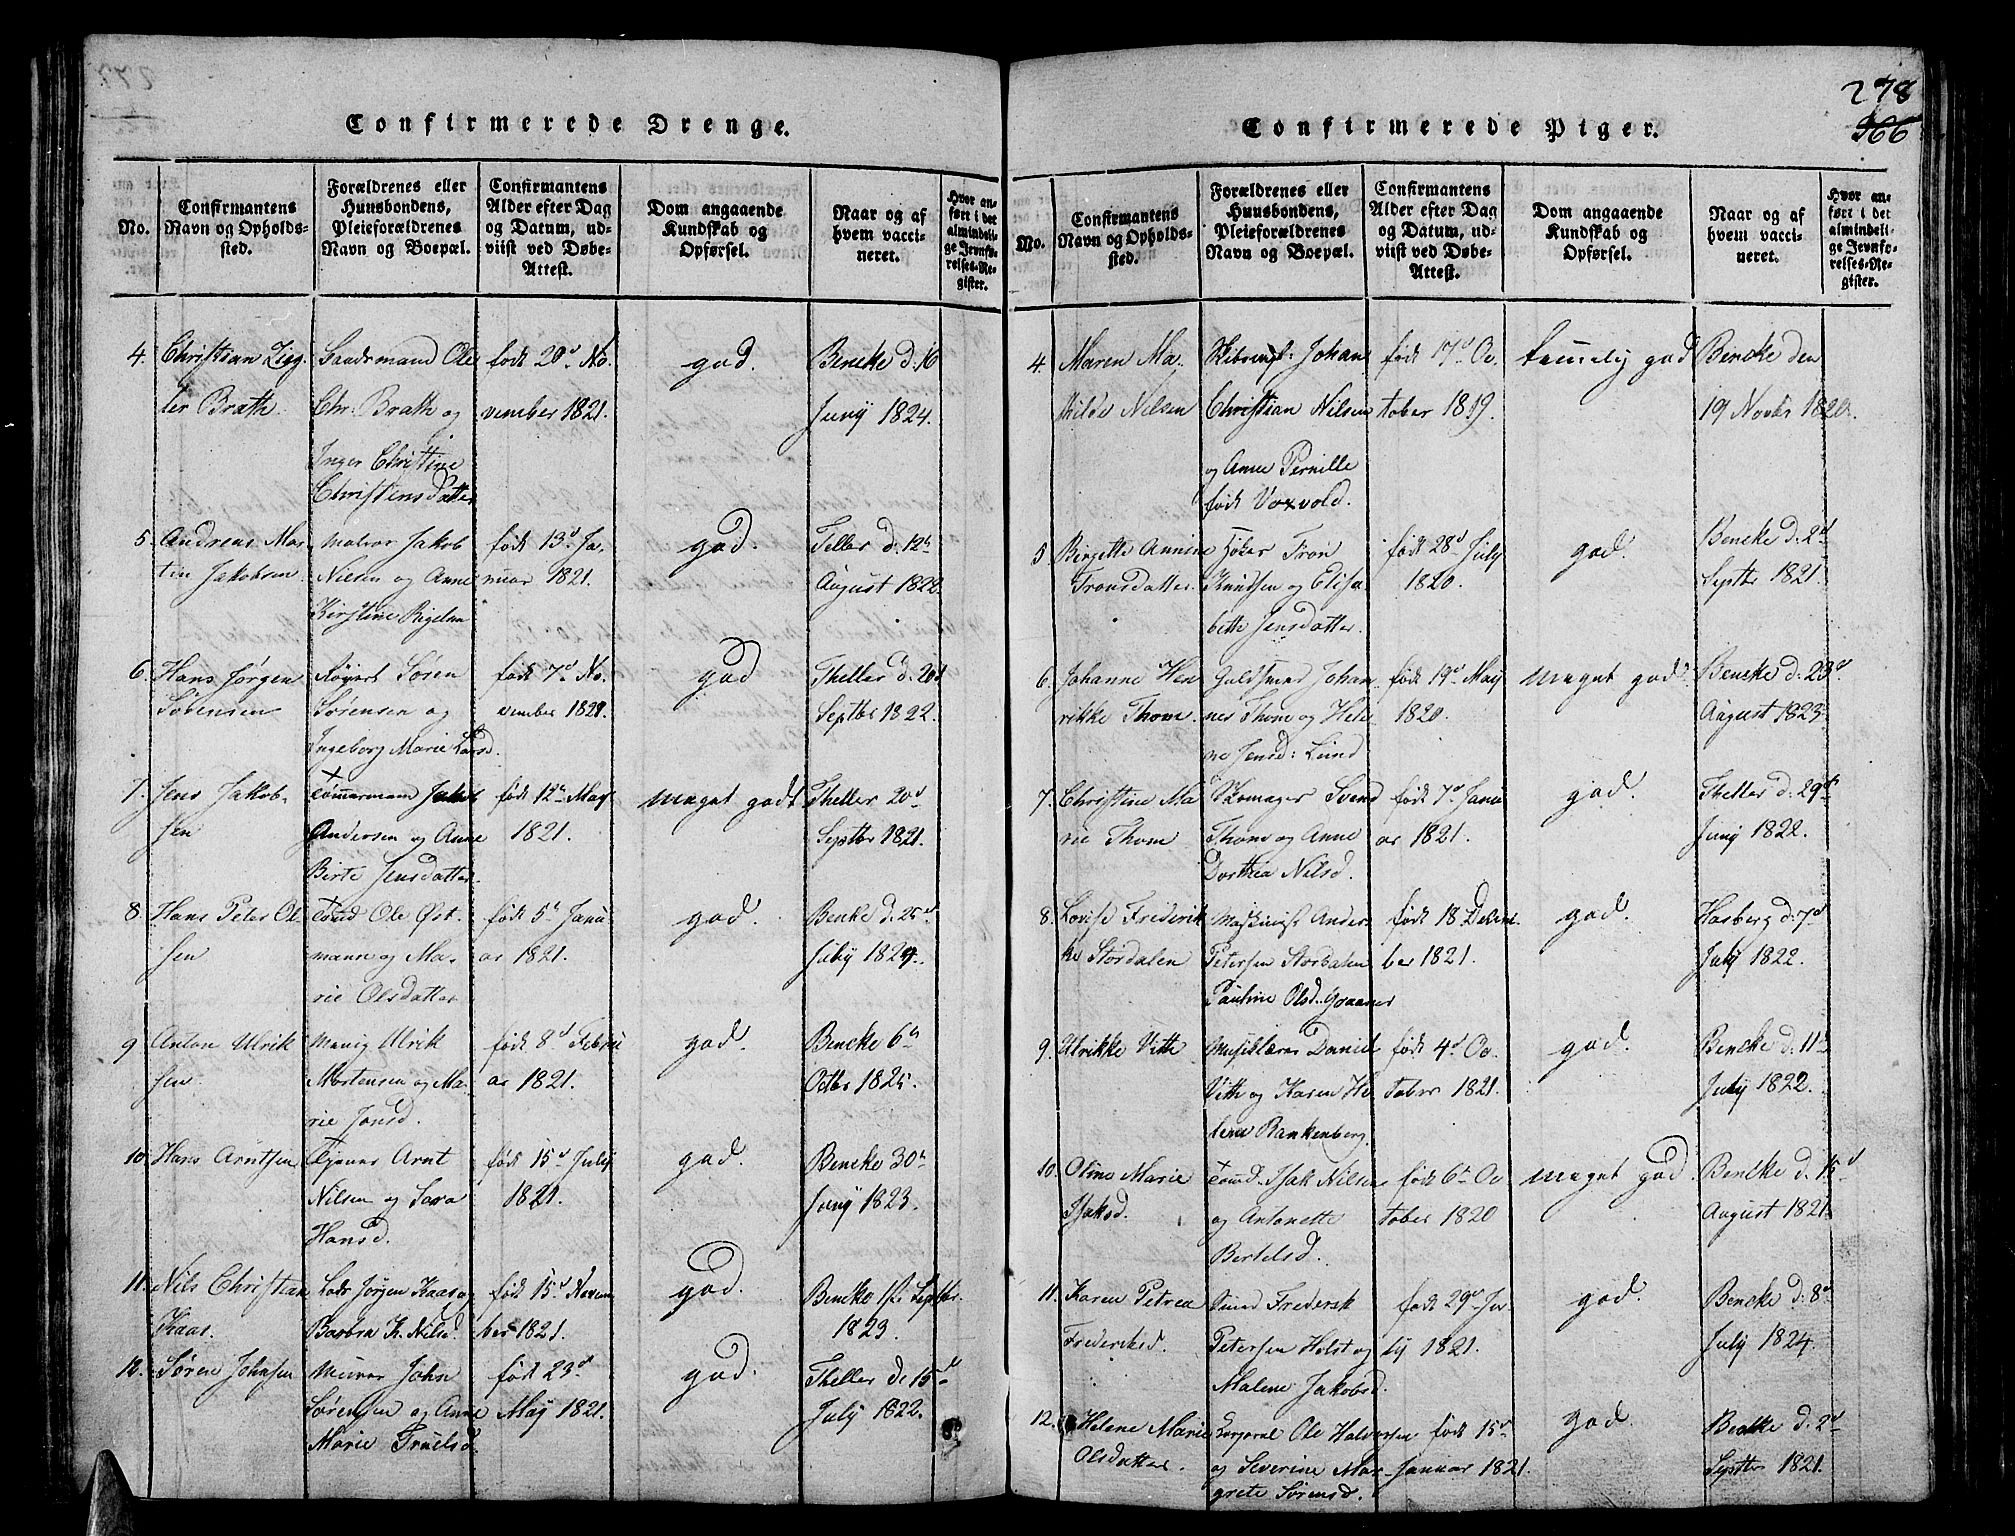 278
366
Confirmerede Drenge.
No.
Confirmantens
Navn og Opholds-
sted.
Forældrenes eller
Huusbondens,
Pleieforældrenes
Navn og Boepæl.
Confirmantens
Alder efter Dag
og Datum, ud-
viist ved Døbe-
Attest.
Dom angaaende
Kundskab og
Opførsel.
Naar og af
hvem vacci-
neret.
Hvor an-
ført i det
almindeli-
ge Jevnfø-
relses-Re-
gister.
4. Christian
ler Brath.
Chr. Brath og
Inger Christine
Christensdatter
født 20d No-
vember 1821.
god.
Bencke d. 16
Juny 1824.
5. Andreas Mar-
tin Jakobsen
Jakob
Nilsen og Anne
Kirstine
født 13d Ja-
nuar 1821.
god.
Teller d. 12t
August 1822.
6. Hans Jørgen
Sørensen
Søren
Sørensen og
Ingeborg Marie Larsd.
født 7d No-
vember 1821.
god
Theller d. 20d
Septbr 1822.
7. Jens Jakob-
sen
Tømermand Jakob
Andersen og Anne
Birte Jensdatter.
født 12t May
1821.
meget godt
Theller 20d
Septbr 1821.
8. Hans Peter Ol-
sen
Ole Øst-
mann og Ma-
rie Olsdatter
født 5t Janu
ar 1821.
god.
Bencke d. 25d
July 1824.
9 Anton Ulrik
sen.
Ulrik
Mortensen og Ma-
rie Jonsd.
født 8d Febru
ar 1821.
god.
Bencke 6t
Octbr 1825.
10. Hans Arntsen
Tjener Arnt
Nilsen og Sara
Hansd.
født 15d July
1821.
god.
Bencke 30t
Juny 1823.
11. Nils Christian
Kaas.
Lods Jørgen Kaas og
Barbra K. Nilsd.
født 15d Novem
ber 1821.
god.
Bencke 1st Septbr.
1823.
12. Søren Johnsen
Murer John
Sørensen og Anne
Marie Truelsd.
født 23d
May 1821.
god.
Theller d. 15d
July 1822.
Confirmerede Piger.
No.
Confirmantens
Navn og Opholds-
sted.
Forældrenes eller
Huusbondens,
Pleieforældrenes
Navn og Boepæl.
Confirmantens
Alder efter Dag
og Datum, ud-
viist ved Døbe-
Attest.
Dom angaaende
Kundskab og
Opførsel.
Naar og af
hvem vacci-
neret.
Hvor an-
ført i det
almindeli-
ge Jevnfø-
relses-Re-
gister.
4. Maren Ma-
thilde Nilsen
Johan
Christian Nilsen
og Anne Pernille
født Voxvold.
født 17d Oc-
tober 1819.
temelig god
Bencke den
19 Novbr 1820.
5 Birgette Annine
Tronsdatter.
Høker Tron
Knudsen og Elisa
beth Jensdatter.
født 28d July
1820.
god.
Bencke d. 2d
Septbr 1821.
6. Johanne Hen
rikke Thom.
Guldsmed Johan
nes Thom og Hele
ne Jensd: Lund
født 19d May
1820.
meget god.
Bencke d. 23d
August 1823.
7. Christine Ma
rie Thom
Skomager Svend
Thom og Anne
Dorthea Nilsd.
født 7d Janu
ar 1821.
god.
Theller d. 29d
Juny 1822.
8. Lovise Frederik
ke Stordalen
Ander
Petersen Stordalen
Pauline Olsd. Graaner
født 18 Decem
ber 1821.
god.
Hasberg d. 7d
July 1822.
9. Ulrikke Vitth
Musiklærer Daniel
Vitth og Karen He
lene Bankenberg
født 4d Oc-
tober 1821.
god.
Bencke d. 11t
July 1822.
10. Oline Marie
Isaksd.
Isak Nilsen
og Antonette
Bertelsd.
født 6t Oc
tober 1820
meget god
Bencke d. 15d
August 1821.
11. Karen Petrea
Frederiksd.
Frederik
Petersen Holst og
Malene Jakobsd.
født 29d Ju-
ly 1821.
god.
Bencke d. 8d
July 1824.
12. Helene Marie
Olsdatter.
Corporal Ole Halvorsen
og Severine Mar-
grete Sørensd.
født 15d
Januar 1821.
god.
Bencke d. 2d
Septbr 1821.